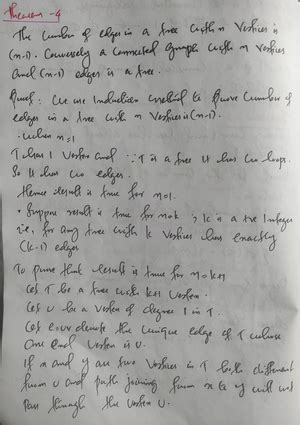 Theorem - 4
The number of edges in a tree with n vertices is
(n-1). Conversely a connected graph with n vertices
and (n-1) edges is a tree.
Proof: We use Induction method to prove number of
edges in a tree with n vertices is (n-1).
when n=1
T has 1 vertex and ∵ T is a tree it has no loops.
So it has no edges.
Hence result is true for n=1.
• Suppose result is true for n=k ; k is a +ve Integer
ie, for any tree with k vertices has exactly
(k-1) edges
To prove that result is true for n=k+1
Let T be a tree with k+1 vertex.
Let u be a vertex of degree 1 in T.
Let e=uv denote the unique edge of T whose
one end vertex is u.
If x and y are two vertices in T both different
from u and path joining from x to y will not
pass through the vertex u.